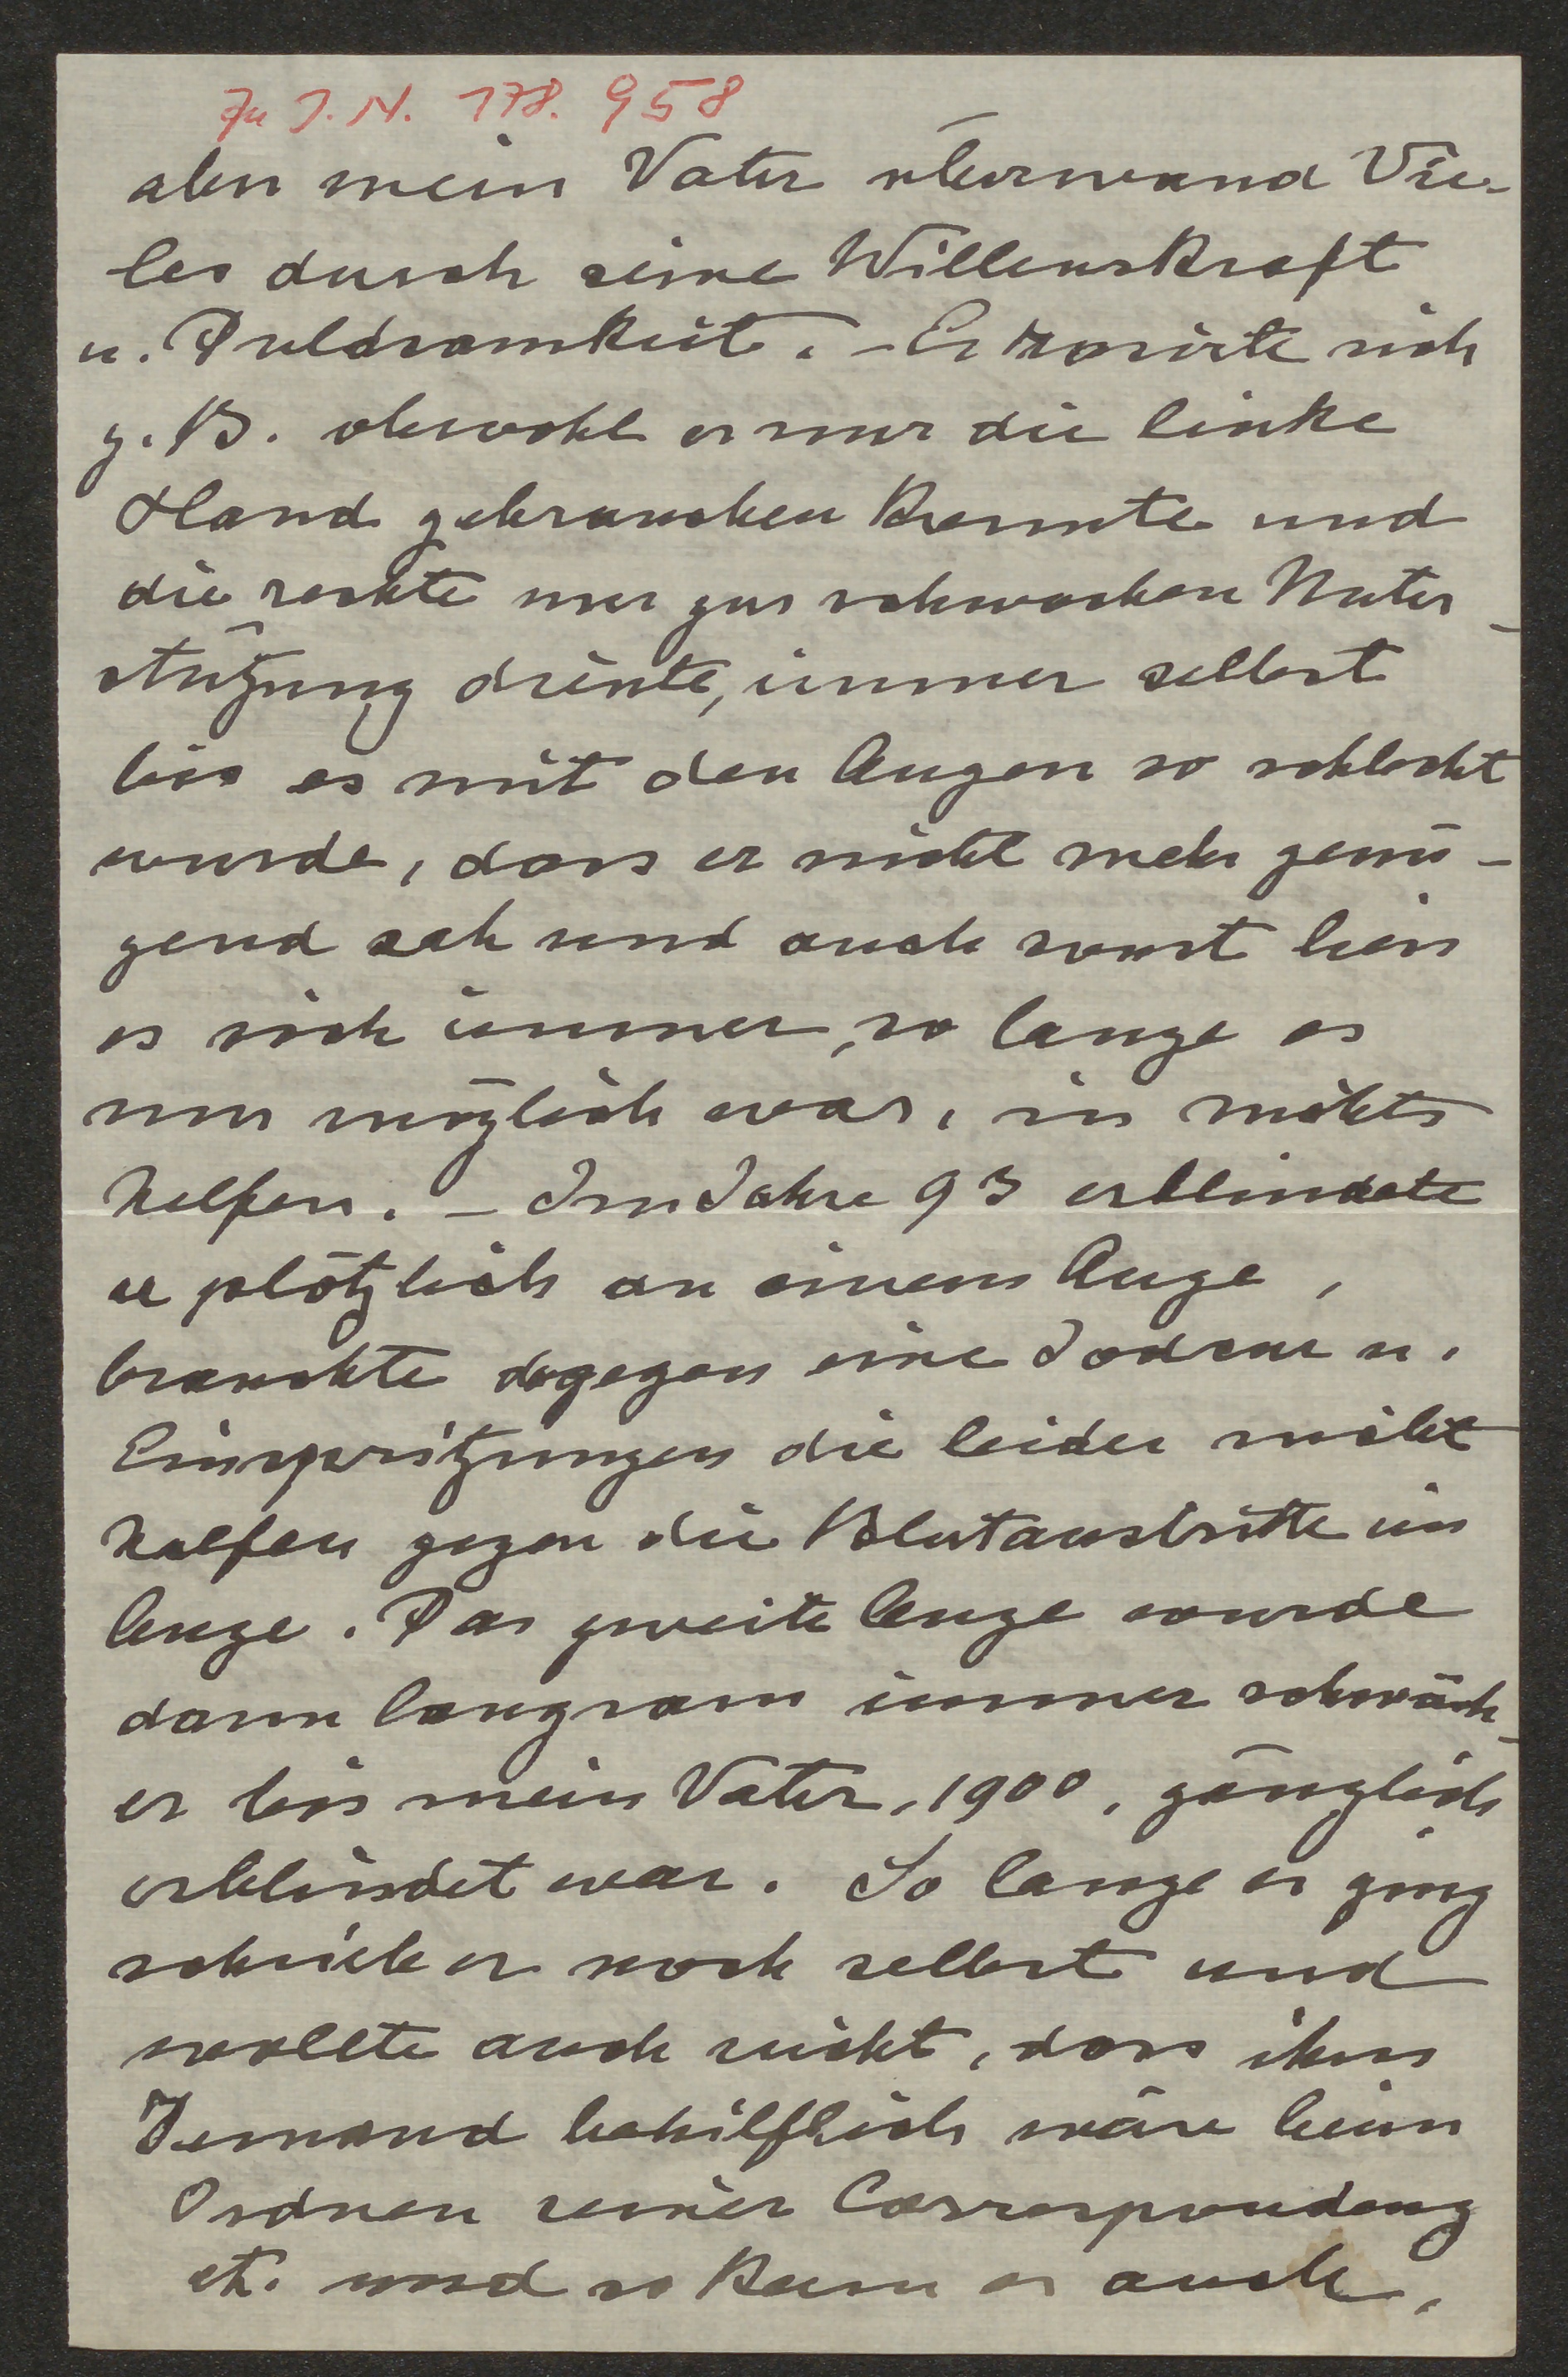 Zu J. N. 178.958
aber mein Vater überwand Vie-
les durch seine Willenskraft
u. Duldsamkeit. – Er rasirte sich
z. B. obwohl er nur die linke
Hand gebrauchen konnte und
die rechte nur zur schwachen Unter-
stützung diente, immer selbst
bis es mit den Augen so schlecht
wurde, dass er nicht mehr genü-
gend sah und auch sonst liess
er sich immer, so lange es
nur möglich war, in nichts
helfen. – Im Jahre 93 erblindete
er plötzlich an einem Auge,
brauchte dagegen eine Jodcur u.
Einspritzungen die leider nicht
halfen gegen die Blutaustritte im
Auge. Das zweite Auge wurde
dann langsam immer schwäch-
er bis mein Vater, 1900, gänzlich
erblindet war. So lange es ging
schrieb er noch selbst und
wollte auch nicht, dass ihm
Jemand behilflich wäre beim
Ordnen seiner Correspondenz
etc. und so kam es auch,